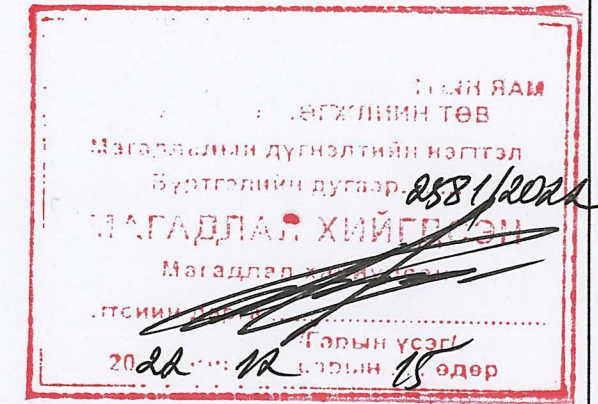 ЯАМ
ТӨВ
Магадлалын дүгнэлтийн нэгтгэл
Бүртгэлийн дугаар 2581/2022
МАГАДЛАЛ ХИЙГДСЭН
Магадлал
/Гарын үсэг/
2022 12 сарын 15 өдөр